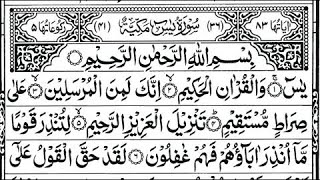 اٰیاتها ٨٣ (٣٦) سُوْرَةُ يٰسٓ مَكِّيَّةٌ (٤١) رکوعاتها ٥
بِسْمِ اللهِ الرَّحْمٰنِ الرَّحِيْمِ
يٰسٓ ۚ وَالْقُرْاٰنِ الْحَكِيْمِ ۙ اِنَّكَ لَمِنَ الْمُرْسَلِيْنَ ۙ عَلٰى
صِرَاطٍ مُّسْتَقِيْمٍ ؕ تَنْزِيْلَ الْعَزِيْزِ الرَّحِيْمِ ۙ لِتُنْذِرَ قَوْمًا
مَّاۤ اُنْذِرَ اٰبَآؤُهُمْ فَهُمْ غٰفِلُوْنَ ۞ لَقَدْ حَقَّ الْقَوْلُ عَلٰٓى